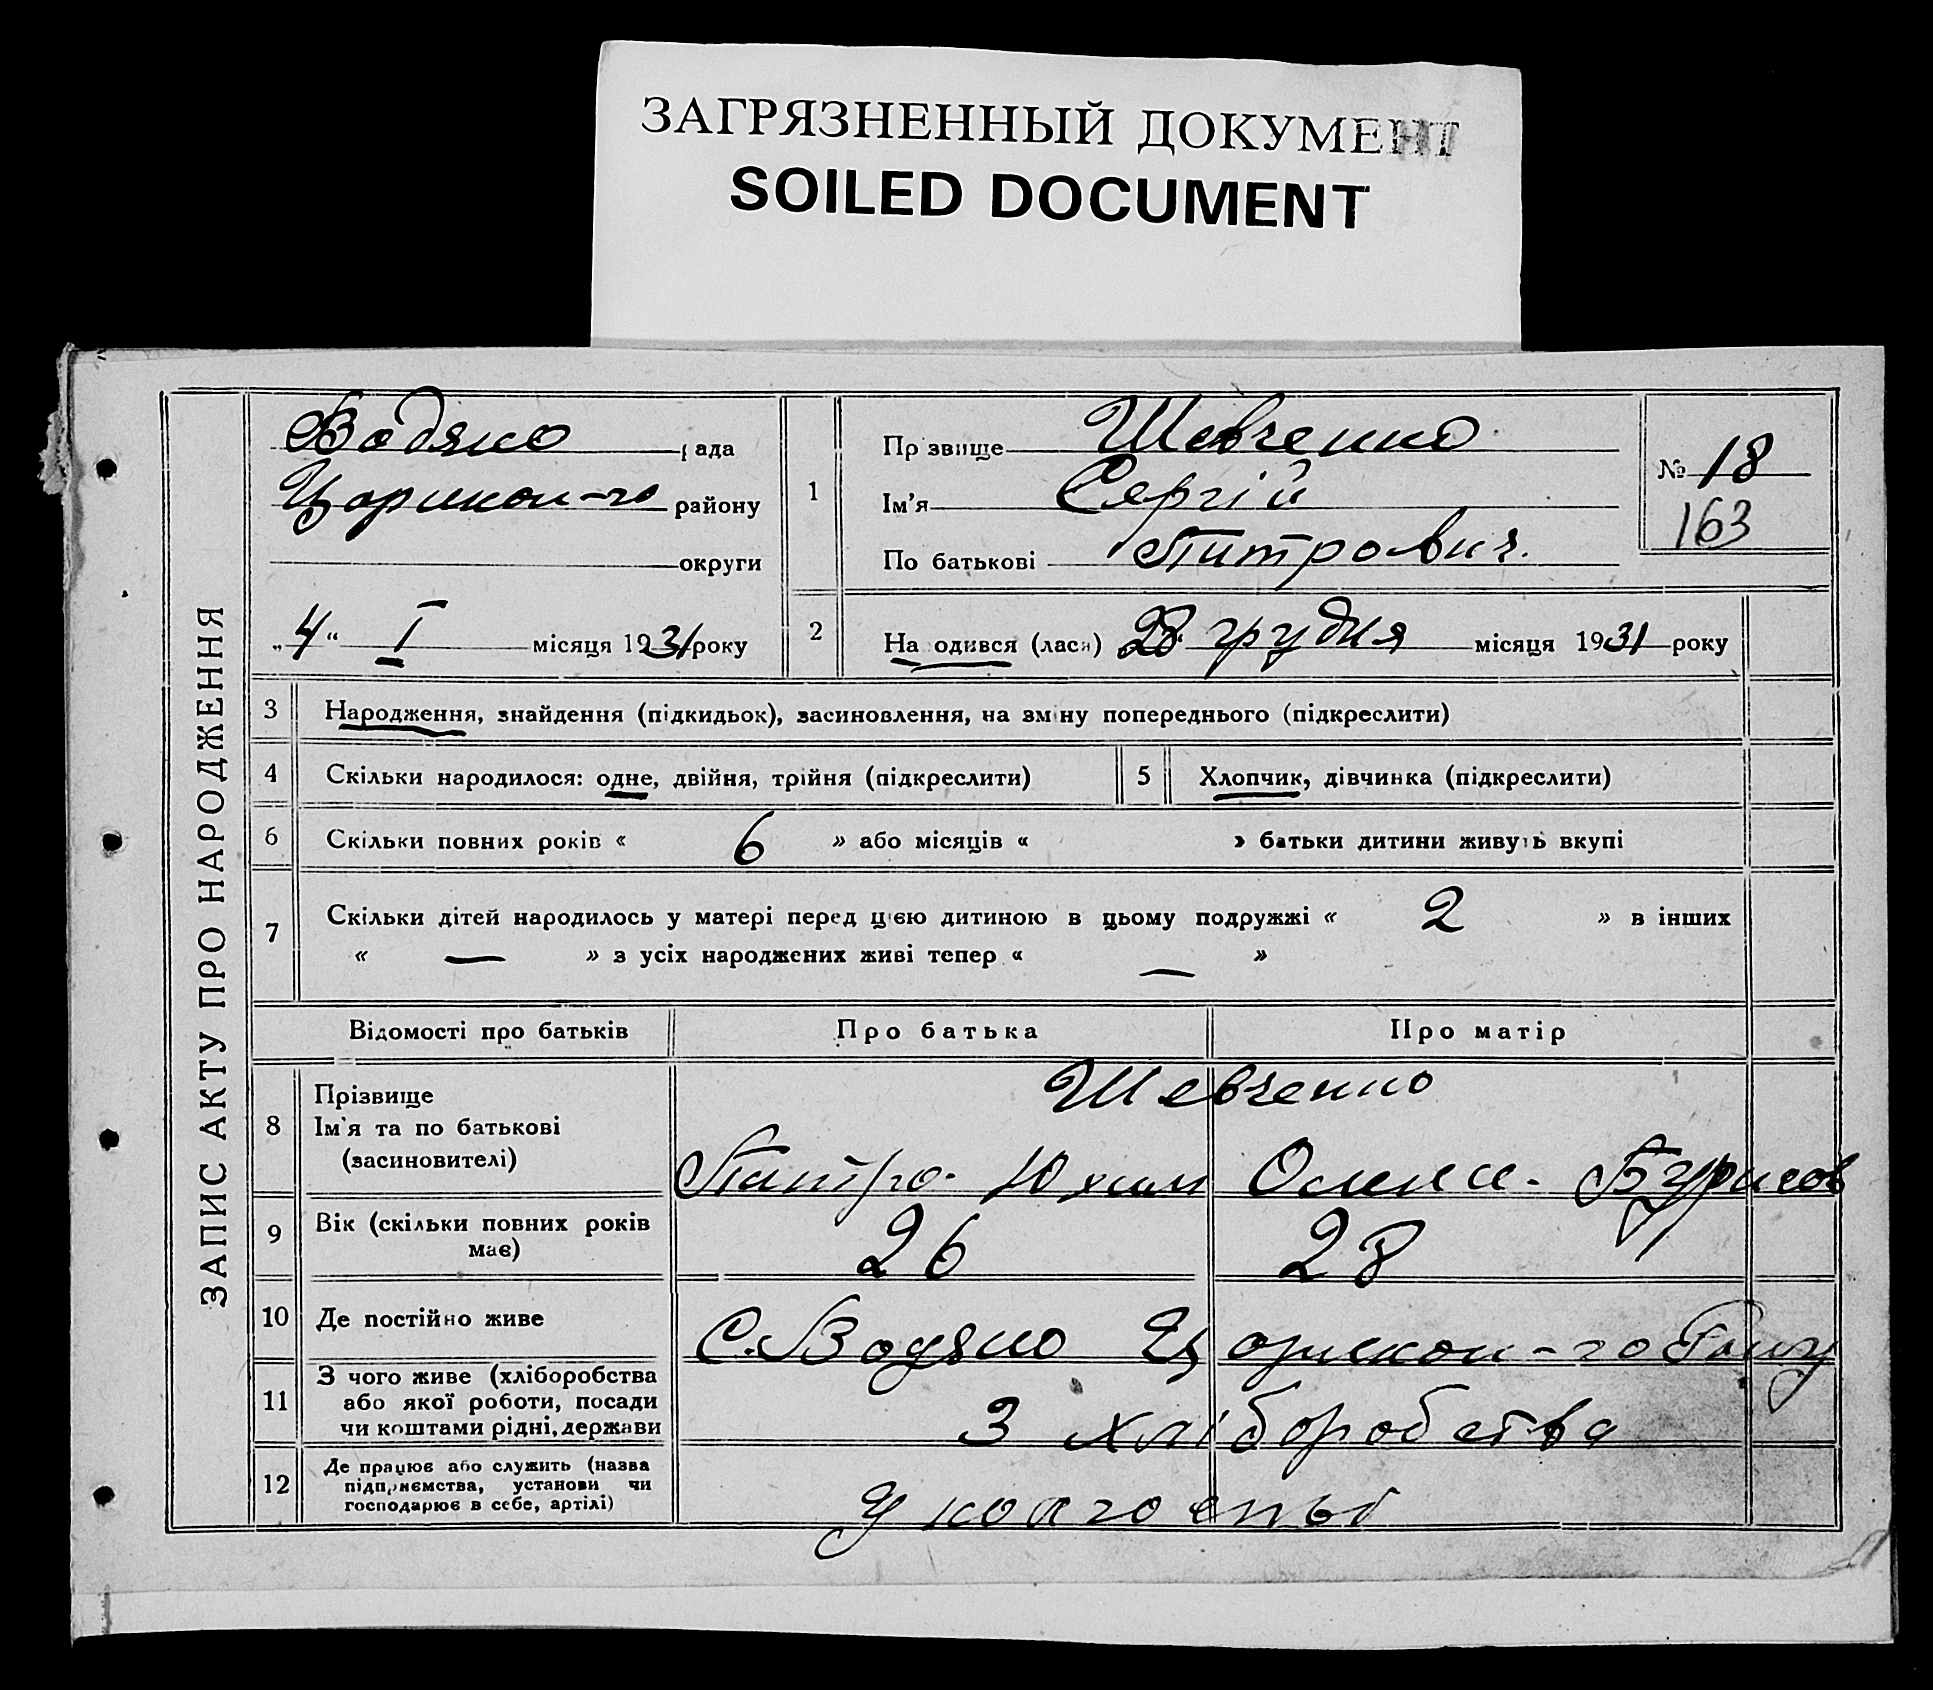 ЗАГРЯЗНЕННЫЙ ДОКУМЕНТ
SOILED DOCUMENT
ЗАПИС АКТУ ПРО НАРОДЖЕННЯ
Водяно рада
Царикон-го району
округи
„4“ I місяця 1931 року
1
Прізвище Шевченко
Ім'я Сергій
По батькові Питрович.
№ 18
163
2 На одився (лася) 28 грудня місяця 1931 року
3 Народження, знайдення (підкидьок), засиновлення, на зміну попереднього (підкреслити)
4 Скільки народилося: одне, двійня, трійня (підкреслити) 5 Хлопчик, дівчинка (підкреслити)
6 Скільки повних років « 6 » або місяців « » батьки дитини живуть вкупі
7 Скільки дітей народилось у матері перед цією дитиною в цьому подружжі « 2 » в інших
« — » з усіх народжених живі тепер « — »
Відомості про батьків Про батька Про матір
8 Прізвище Шевченко
Ім'я та по батькові
(засиновителі) Питро. Юхим
9 Вік (скільки повних років має) 26 28
10 Де постійно живе С. Водяно Царикон-го Району
11 З чого живе (хліборобства
або якої роботи, посади
чи коштами рідні, держави З хліборобства
12 Де працює або служить (назва
підприємства, установи чи
господарює в себе, артілі) У колгоспы